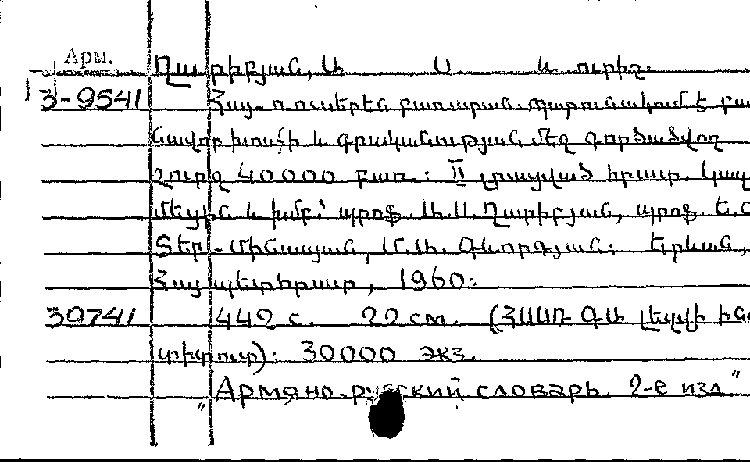 Арм.
Ղարիբյան, Ա Ս և ուրիշ.
3-9541 Հայ-ռուսերեն բառարան պարունակում է բա
նավոր խոսքի և գրականության մեջ գործածվող
շուրջ 40000 բառ: II լրացված հրատ. Կազ
մեցին և խմբ՝ պրոֆ. Ա.Ս. Ղարիբյան, պրոֆ. Ե.Գ
Տեր-Մինասյան, Մ.Ա. Գևորգյան: Երևան,
Հայպետհրատ, 1960:
30741 442 с. 22 см. (ՀՍՍՌ ԳԱ Լեզվի ինս
տիտուտ): 30000 экз.
"Армяно-русский словарь. 2-е изд."